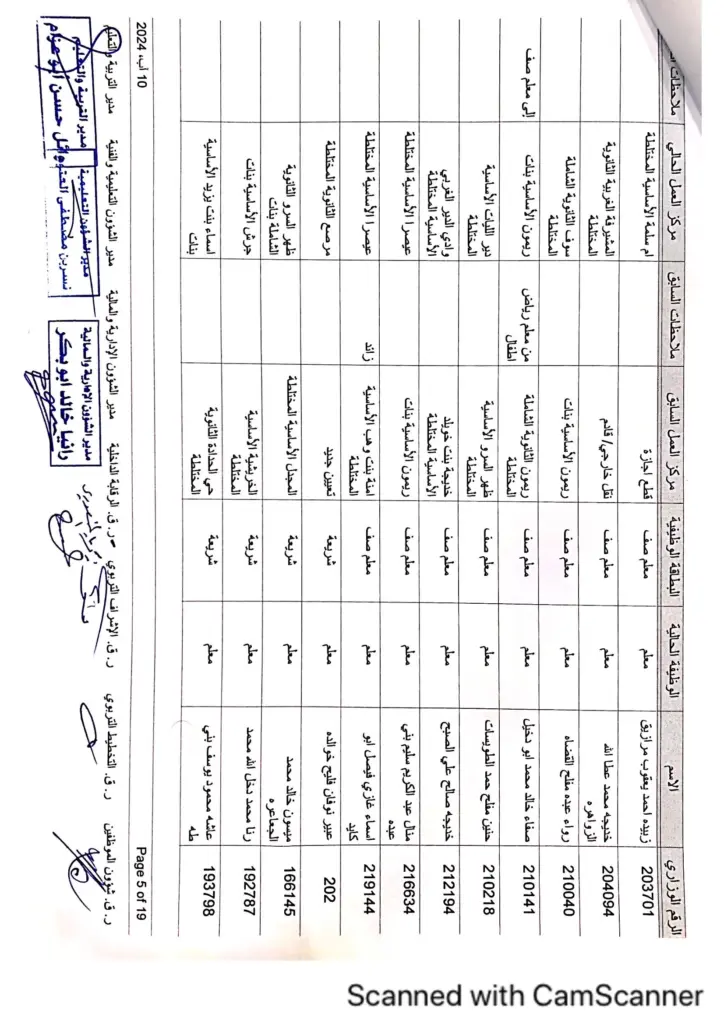 الرقم الوزاري الاسم الوظيفة الحالية البطاقة الوظيفية مركز العمل السابق ملاحظات السابق مركز العمل الحالي ملاحظات
203701 زبيده احمد يعقوب مرازيق معلم معلم صف قطع اجازة ام سلمة الأساسية المختلطة
204094 خديجه محمد عطا الله الزواهره معلم معلم صف نقل خارجي/ قادم المشيرفة الغربية الثانوية المختلطة
210040 رواء عبده مفلح القضاه معلم معلم صف ريمون الأساسية بنات سوف الثانوية الشاملة المختلطة
210141 صفاء خالد محمد ابو دخيل معلم معلم صف ريمون الثانوية الشاملة المختلطة من معلم رياض اطفال ريمون الأساسية بنات إلى معلم صف
210218 حنين مفلح حمد الطويسات معلم معلم صف ظهر السرو الأساسية المختلطة دير الليات الأساسية المختلطة
212194 خديجه صالح علي الصبح معلم معلم صف خديجة بنت خويلد الأساسية المختلطة وادي الدير الغربي الأساسية المختلطة
216634 منال عبد الكريم سليم بني عبده معلم معلم صف ريمون الأساسية بنات عيصرا الأساسية المختلطة
219144 اسماء غازي فيصل ابو كايد معلم معلم صف امنة بنت وهب الأساسية المختلطة زائد عيصرا الأساسية المختلطة
202 عبير نوفان فليح خوالده معلم شريعة تعيين جديد مرصع الثانوية المختلطة
166145 ميسون خالد محمد الجعافره معلم شريعة المجدل الأساسية المختلطة ظهر السرو الثانوية الشاملة بنات
192787 رنا محمد دخل الله محمد معلم شريعة الخريشية الأساسية المختلطة جرش الأساسية بنات
193798 عائشه محمود يوسف بني طه معلم شريعة حي الحدادة الثانوية المختلطة اسماء بنت يزيد الأساسية بنات
Page 5 of 19
10 آب، 2024
ر. ق. شؤون الموظفين ر. ق. التخطيط التربوي ر. ق. الإشراف التربوي ر. ق. الرقابة الداخلية مدير الشؤون الإدارية والمالية مدير الشؤون التعليمية والفنية مدير التربية والتعليم
مدير الشؤون الإدارية والمالية
رانيا خالد ابو بكر
مدير الشؤون التعليمية
نسرين مصطفى العتوم
مدير التربية والتعليم
وائل حسن ابو عزام
Scanned with CamScanner